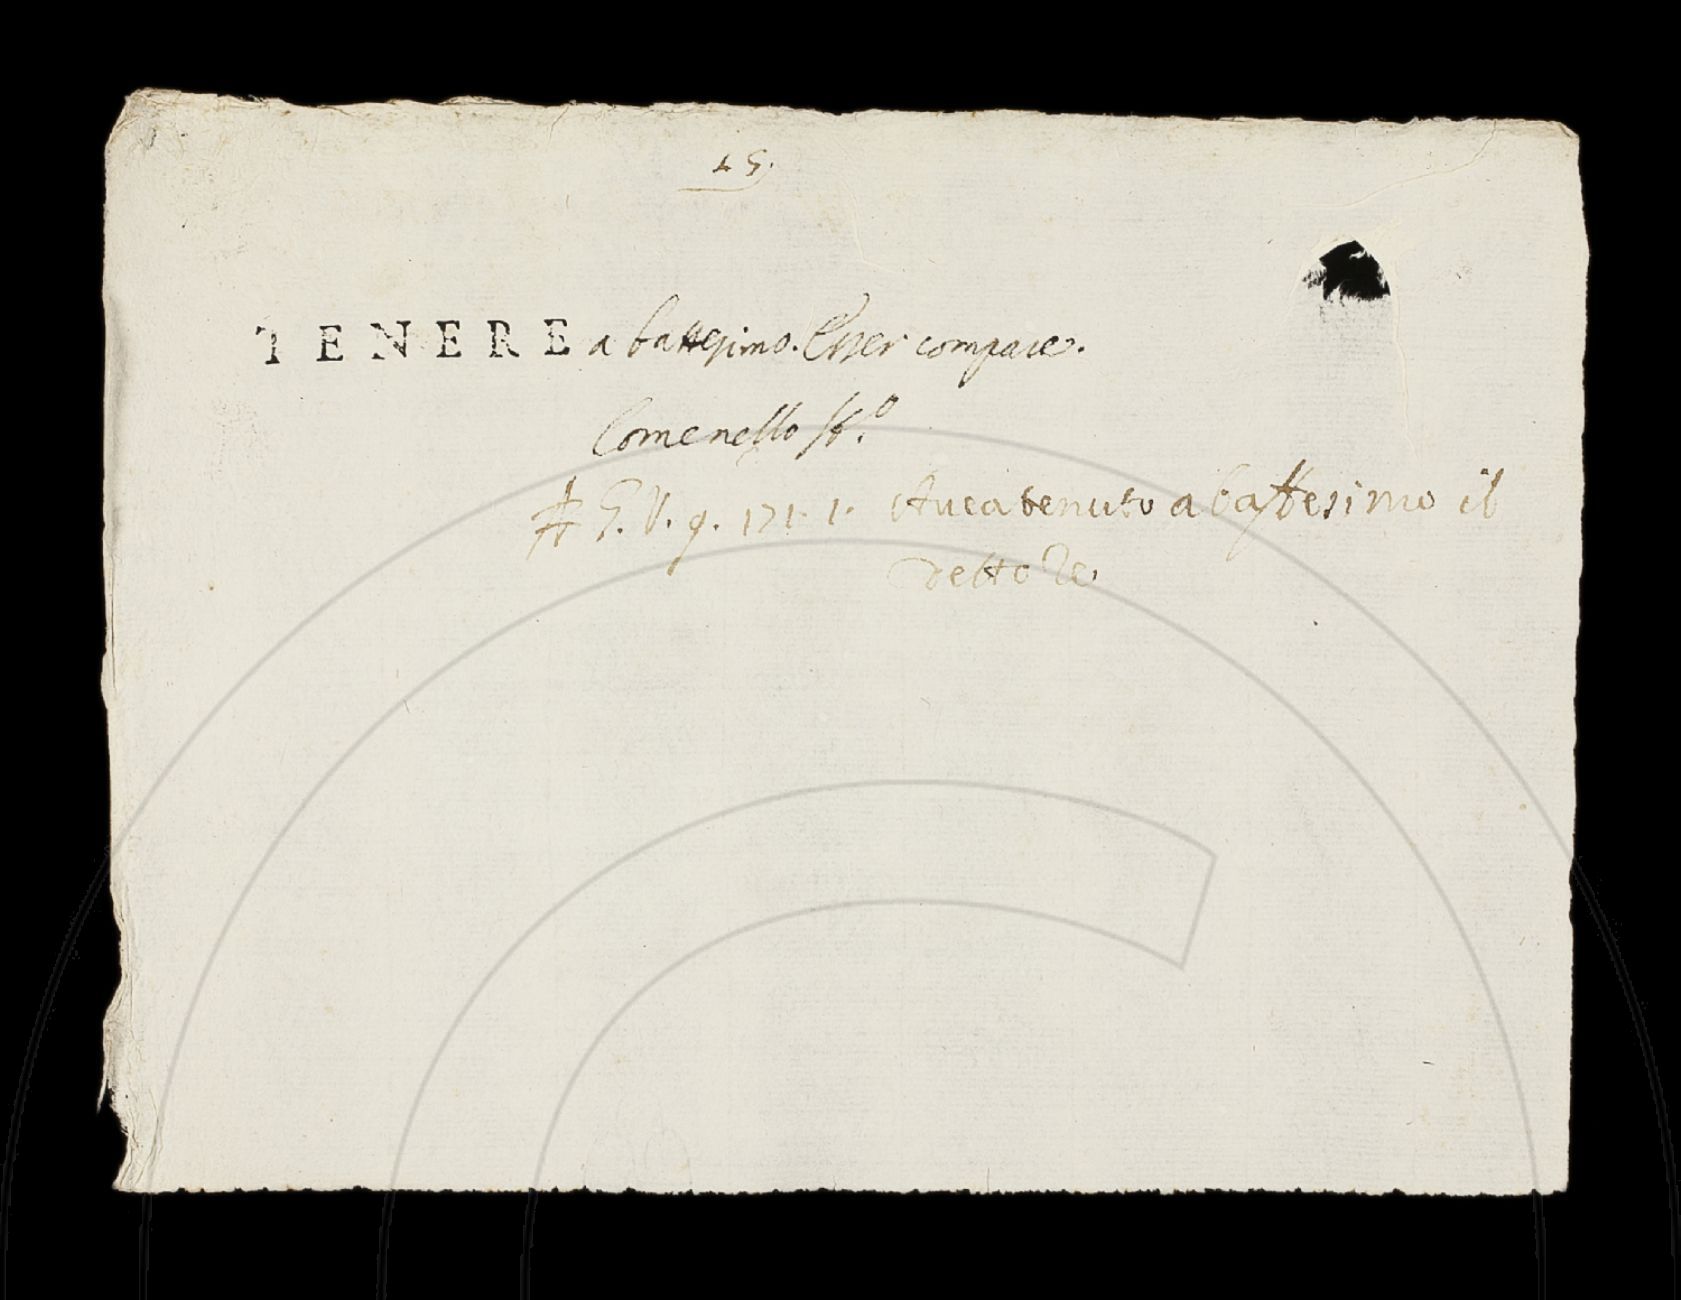 15.
TENERE a battesimo. Esser compare.
Comenello
G. V. 9. 171. 1. Avea tenuto a battesimo il
detto Re.